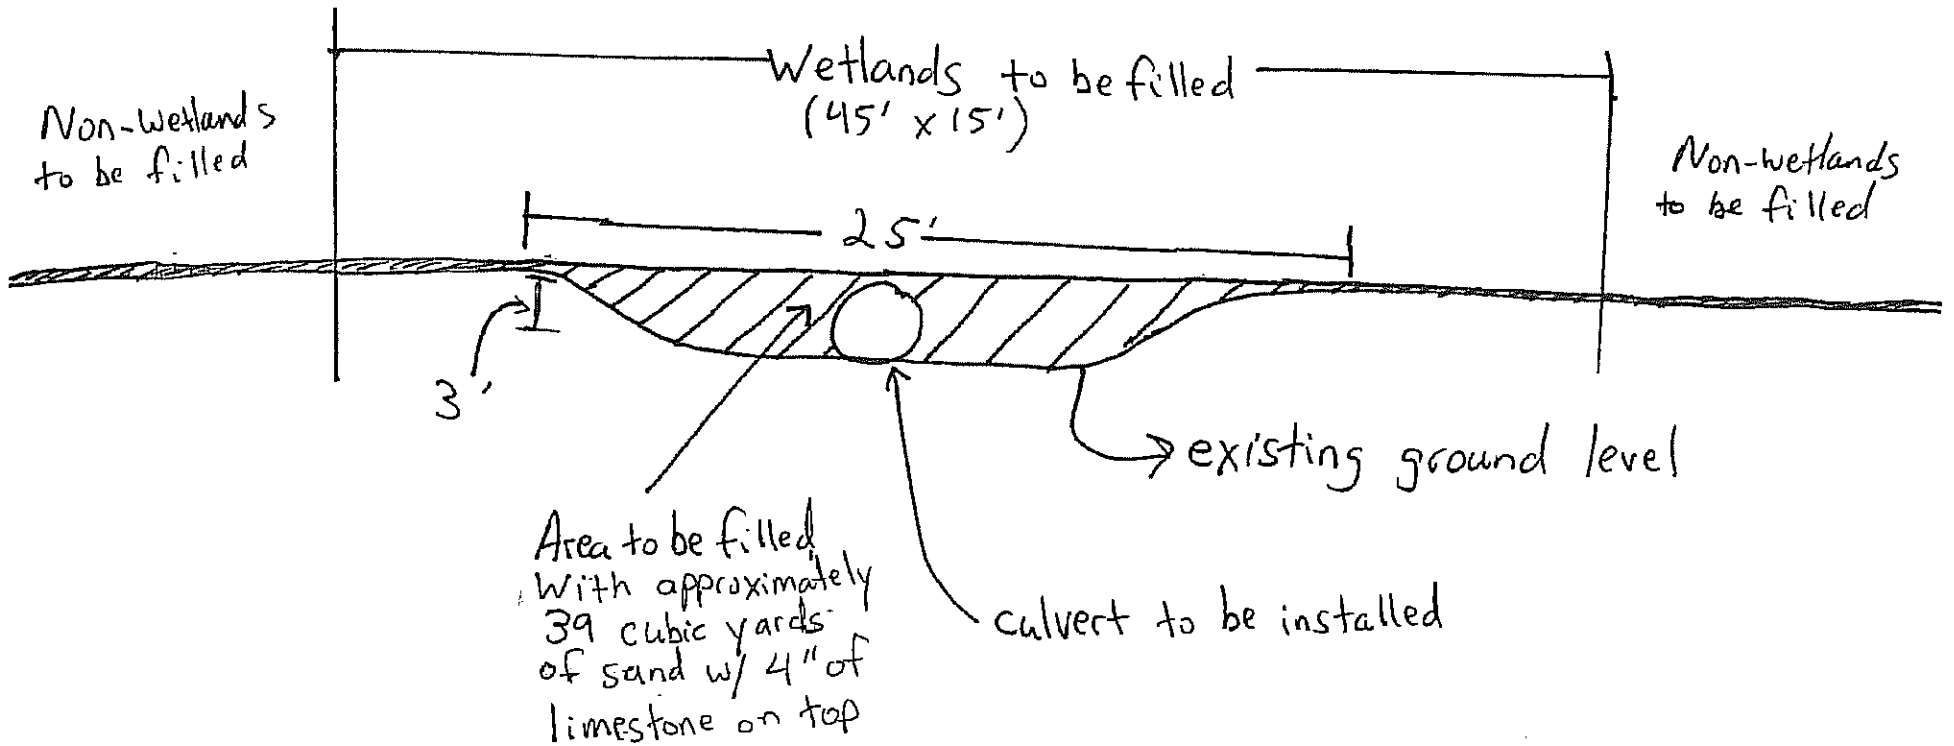 Wetlands to be filled
(45' x 15')
Non-wetlands
to be filled
Non-wetlands
to be filled
25'
3'
existing ground level
Area to be filled
with approximately
39 cubic yards
of sand w/ 4" of
limestone on top
culvert to be installed